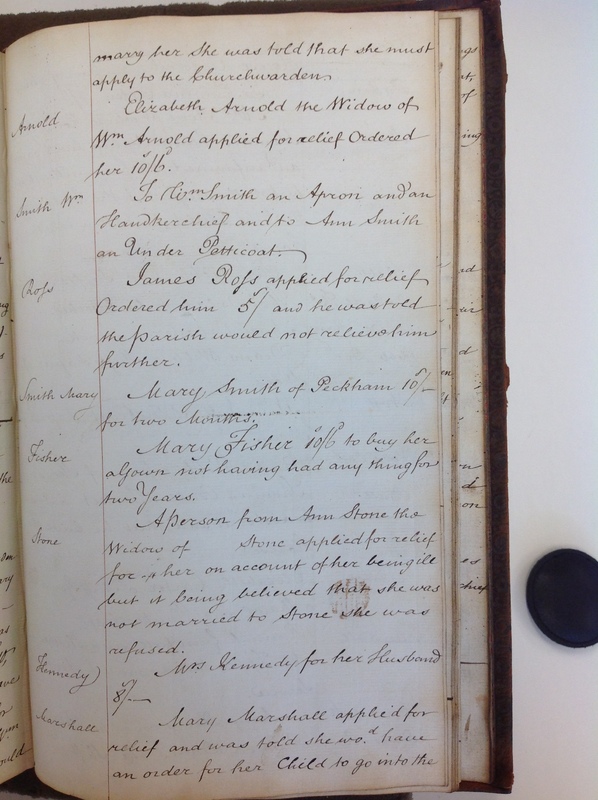 marry her She was told that she must
apply to the Churchwarden
Arnold
Elizabeth Arnold the Widow of
Wm Arnold applied for relief Ordered
her 10/6.
Smith Wm
To Wm Smith an Apron and an
Handkerchief and to Ann Smith
an Under Petticoat.
Ross
James Ross applied for relief
Ordered him 5/ and he was told
the Parish would not relieve him
further.
Smith Mary
Mary Smith of Peckham 10/-
for two Months.
Fisher
Mary Fisher 10/6 to buy her
a Gown not having had any thing for
two Years.
Stone
A Person from Ann Stone the
Widow of Stone applied for relief
for her on account of her being ill
but it being believed that she was
not married to Stone she was
refused.
Kennedy
Mrs Kennedy for her Husband
8/-
Marshall
Mary Marshall applied for
relief and was told she wo.d have
an order for her Child to go into the